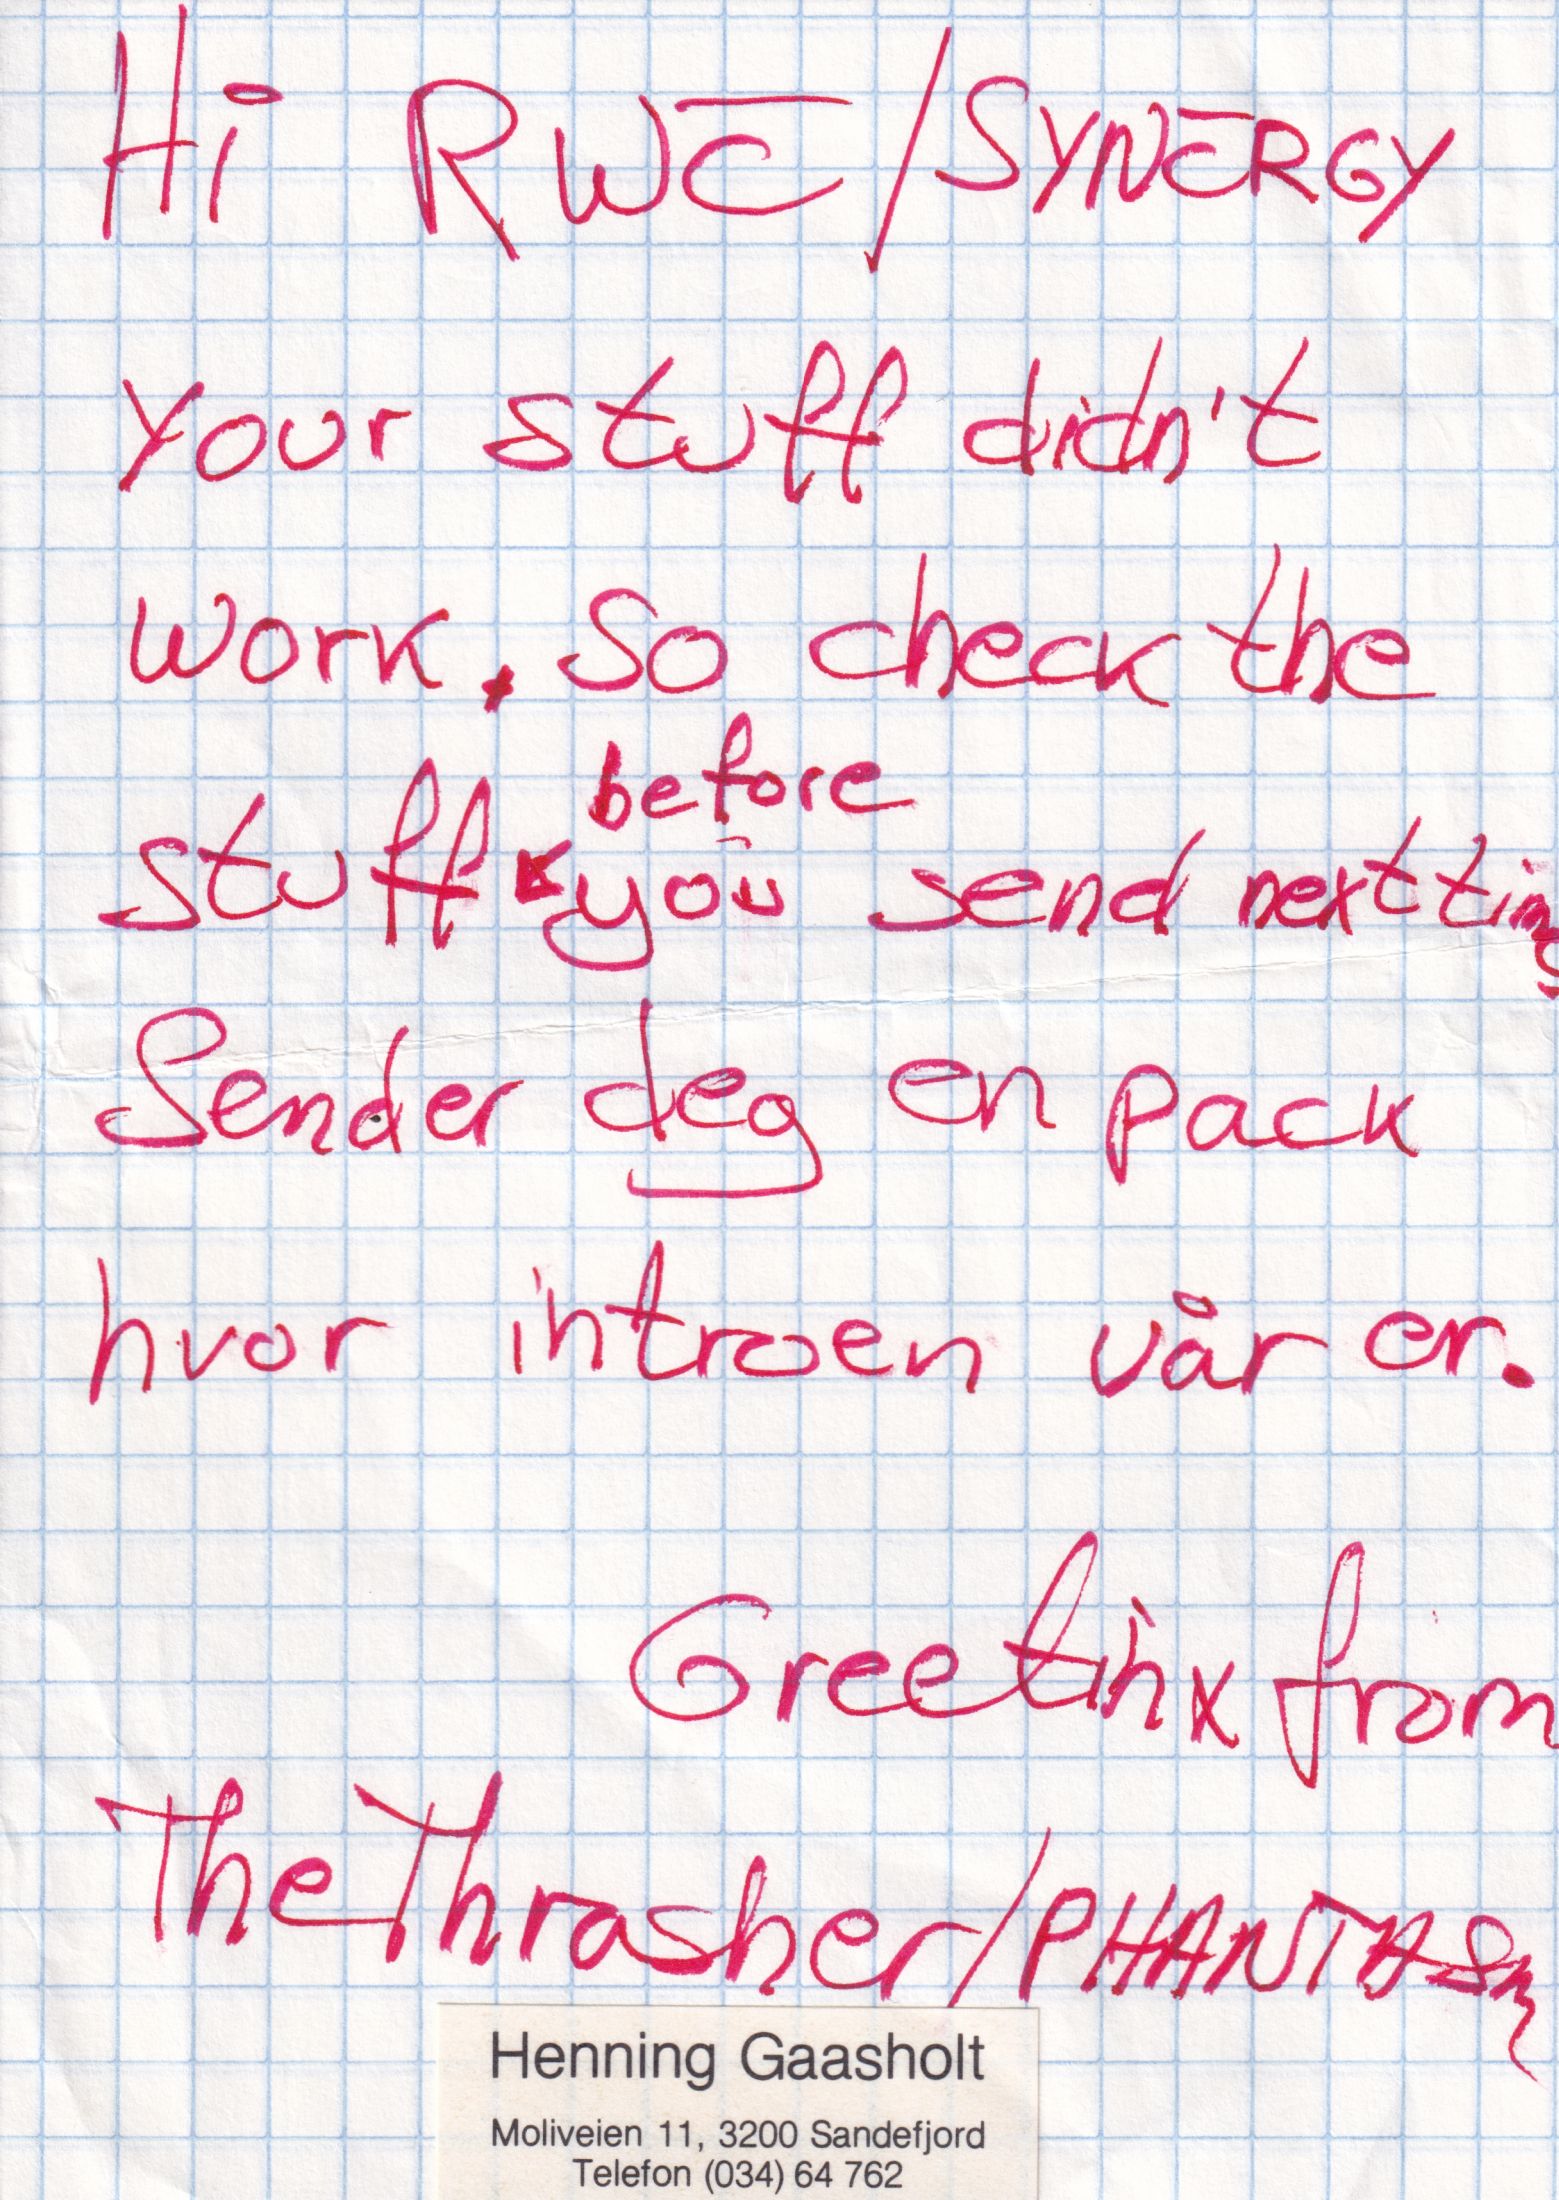 Hi RWE/SYNERGY
Your stuff didn't
work. So check the
before
stuff you send next time
Sender deg en pack
hvor introen vår er.
Greetinx from
The Thrasher/PHANTASM
Henning Gaasholt
Moliveien 11, 3200 Sandefjord
Telefon (034) 64 762